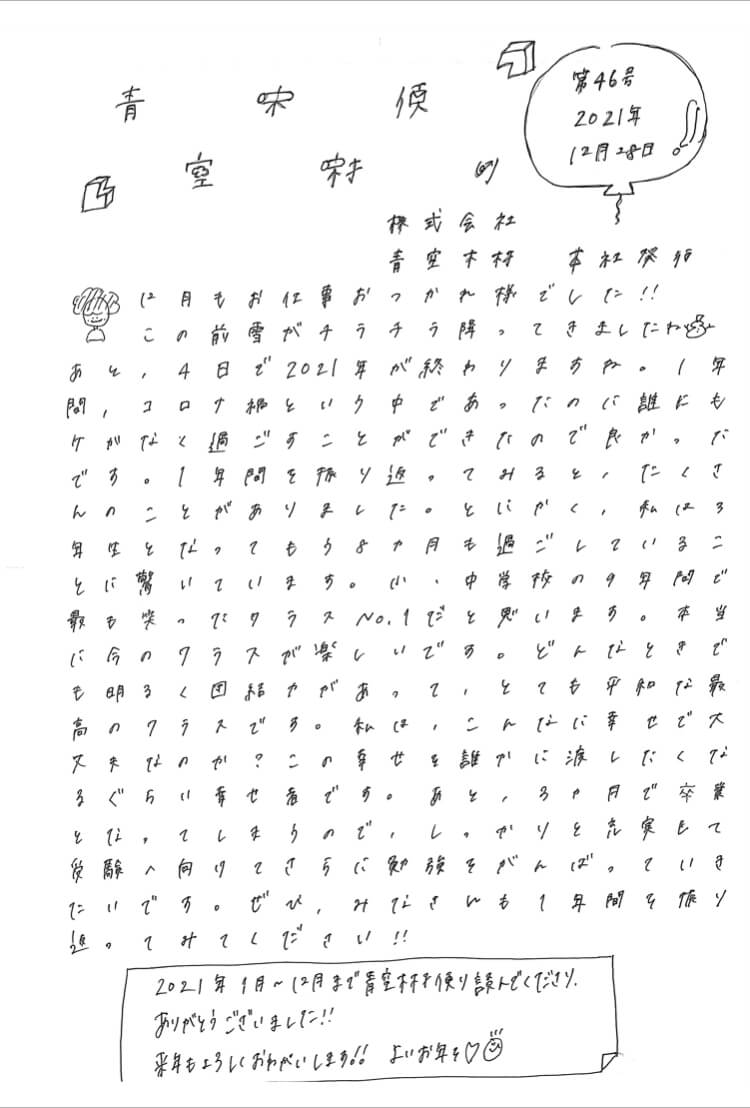 青空木材便り
第46号
2021年
12月28日
株式会社
青空木材 本社発行
12月もお仕事おつかれ様でした!!
この前雪がチラチラ降ってきましたね
あと、4日で2021年が終わりますね。1年
間、コロナ禍という中であったのに誰にも
ケガなく過ごすことができたので良かった
です。1年間を振り返ってみると、たくさ
んのことがありました。とにかく、私は3
年生となってもう8ヶ月も過ごしているこ
とに驚いています。小・中学校の9年間で
最も笑ったクラスNo.1だと思います。本当
に今のクラスが楽しいです。どんなときで
も明るく団結力があって、とても平和な最
高のクラスです。私は、こんなに幸せで大
丈夫なのか?この幸せを誰かに渡したくな
るぐらい幸せ者です。あと、3ヶ月で卒業
となってしまうので、しっかりと充実して
受験へ向けてさらに勉強をがんばっていき
たいです。ぜひ、みなさんも1年間を振り
返ってみてください!!
2021年1月~12月まで青空木材便り読んでくださり、
ありがとうございました!!
来年もよろしくおねがいします!! よいお年を♡